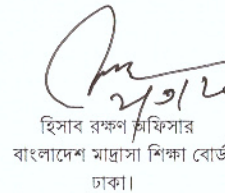 হিসাব রক্ষণ অফিসার
বাংলাদেশ মাদ্রাসা শিক্ষা বোর্ড
ঢাকা।